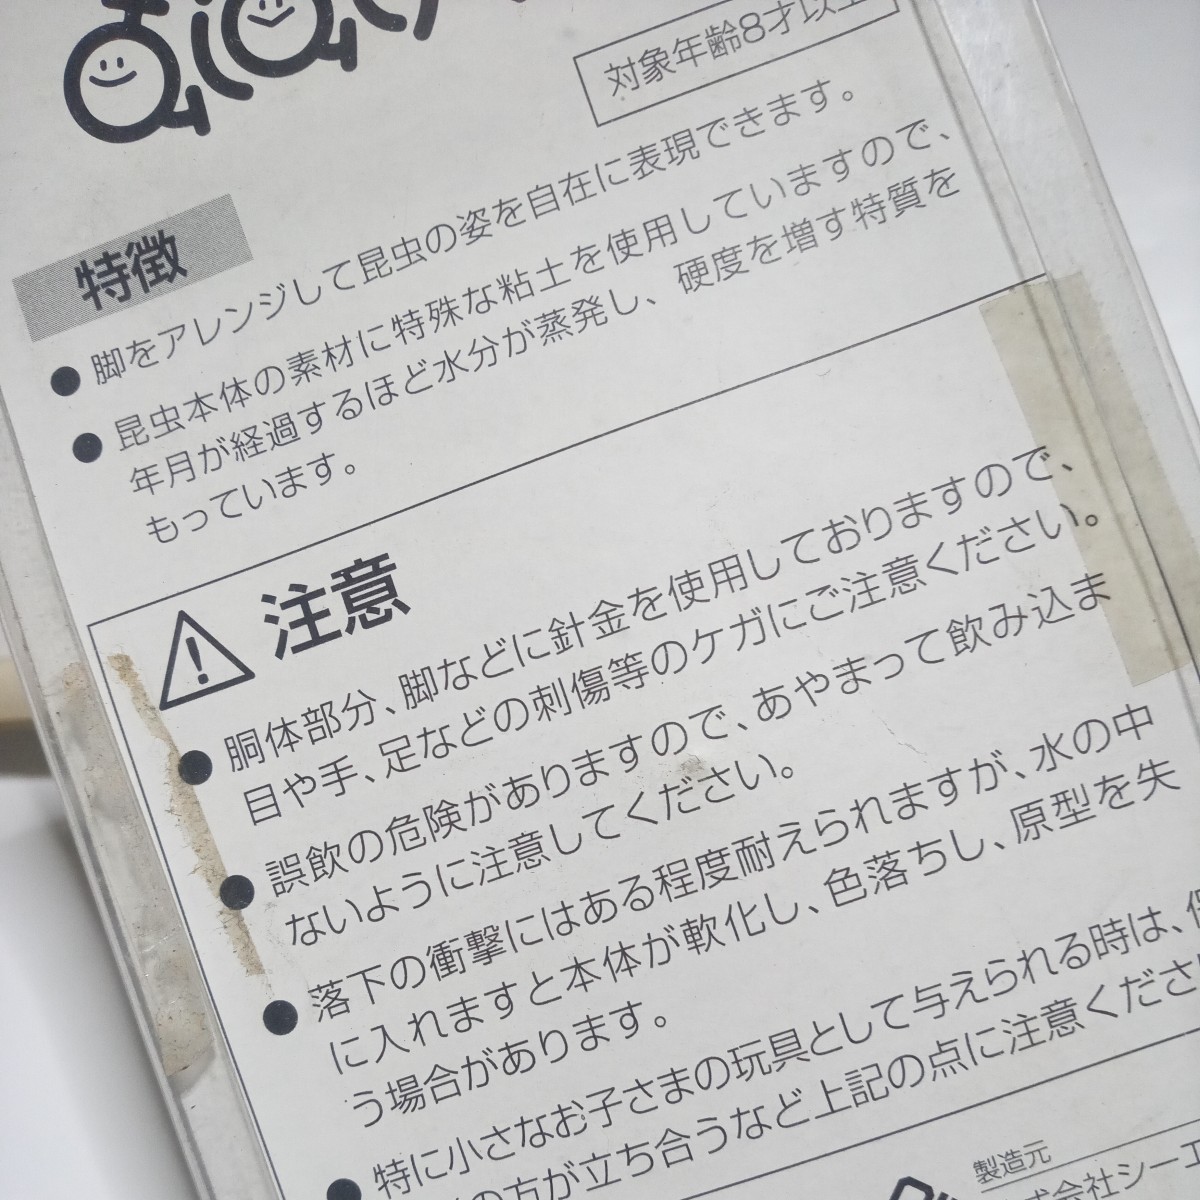 対象年齢8才以上
特徴
● 脚をアレンジして昆虫の姿を自在に表現できます。
● 昆虫本体の素材に特殊な粘土を使用していますので、
年月が経過するほど水分が蒸発し、硬度を増す特質を
もっています。
注意
● 胴体部分、脚などに針金を使用しておりますので、
目や手、足などの刺傷等のケガにご注意ください。
● 誤飲の危険がありますので、あやまって飲み込ま
ないように注意してください。
● 落下の衝撃にはある程度耐えられますが、水の中
に入れますと本体が軟化し、色落ちし、原型を失
う場合があります。
● 特に小さなお子さまの玩具として与えられる時は、
の方が立ち合うなど上記の点に注意くださ
製造元
式会社シーエ